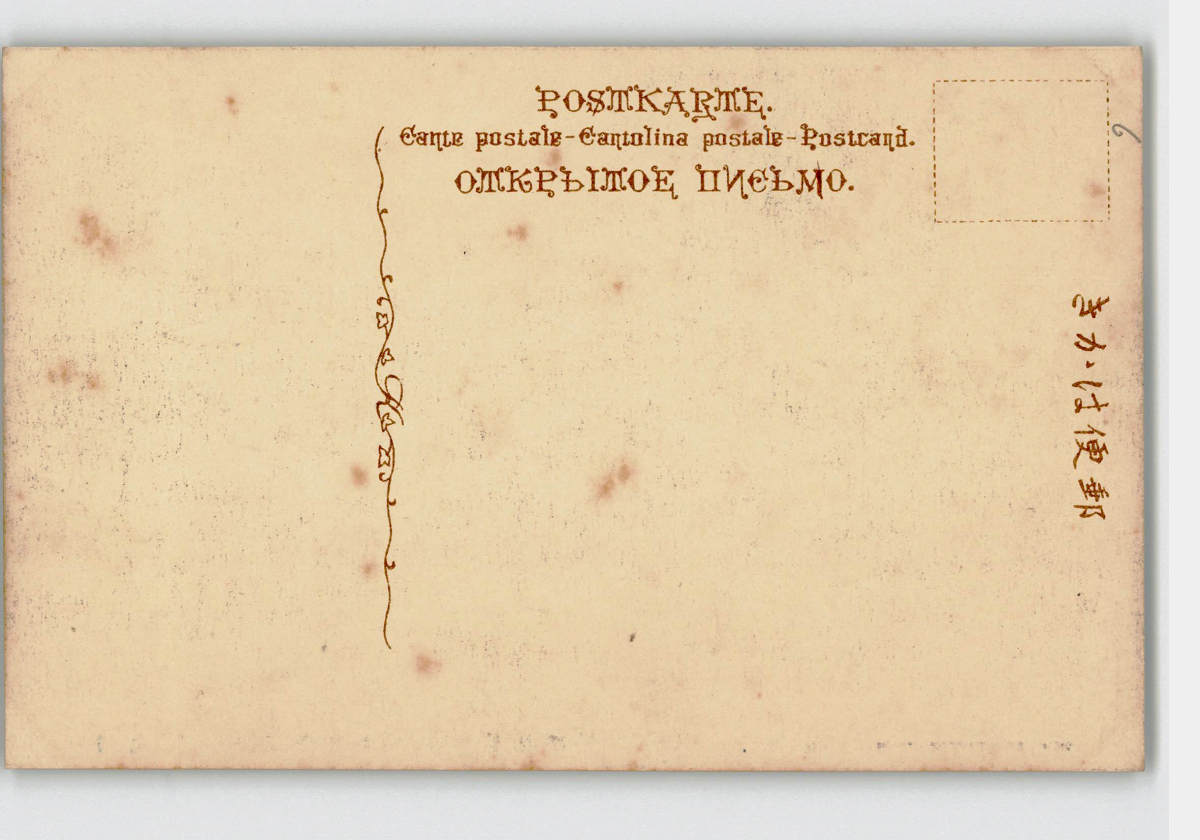 POSTKARTE.
Carte postale-Cartolina postale-Postcard.
ОТКРЫТОЕ ПИСЬМО.
きかは便郵
6